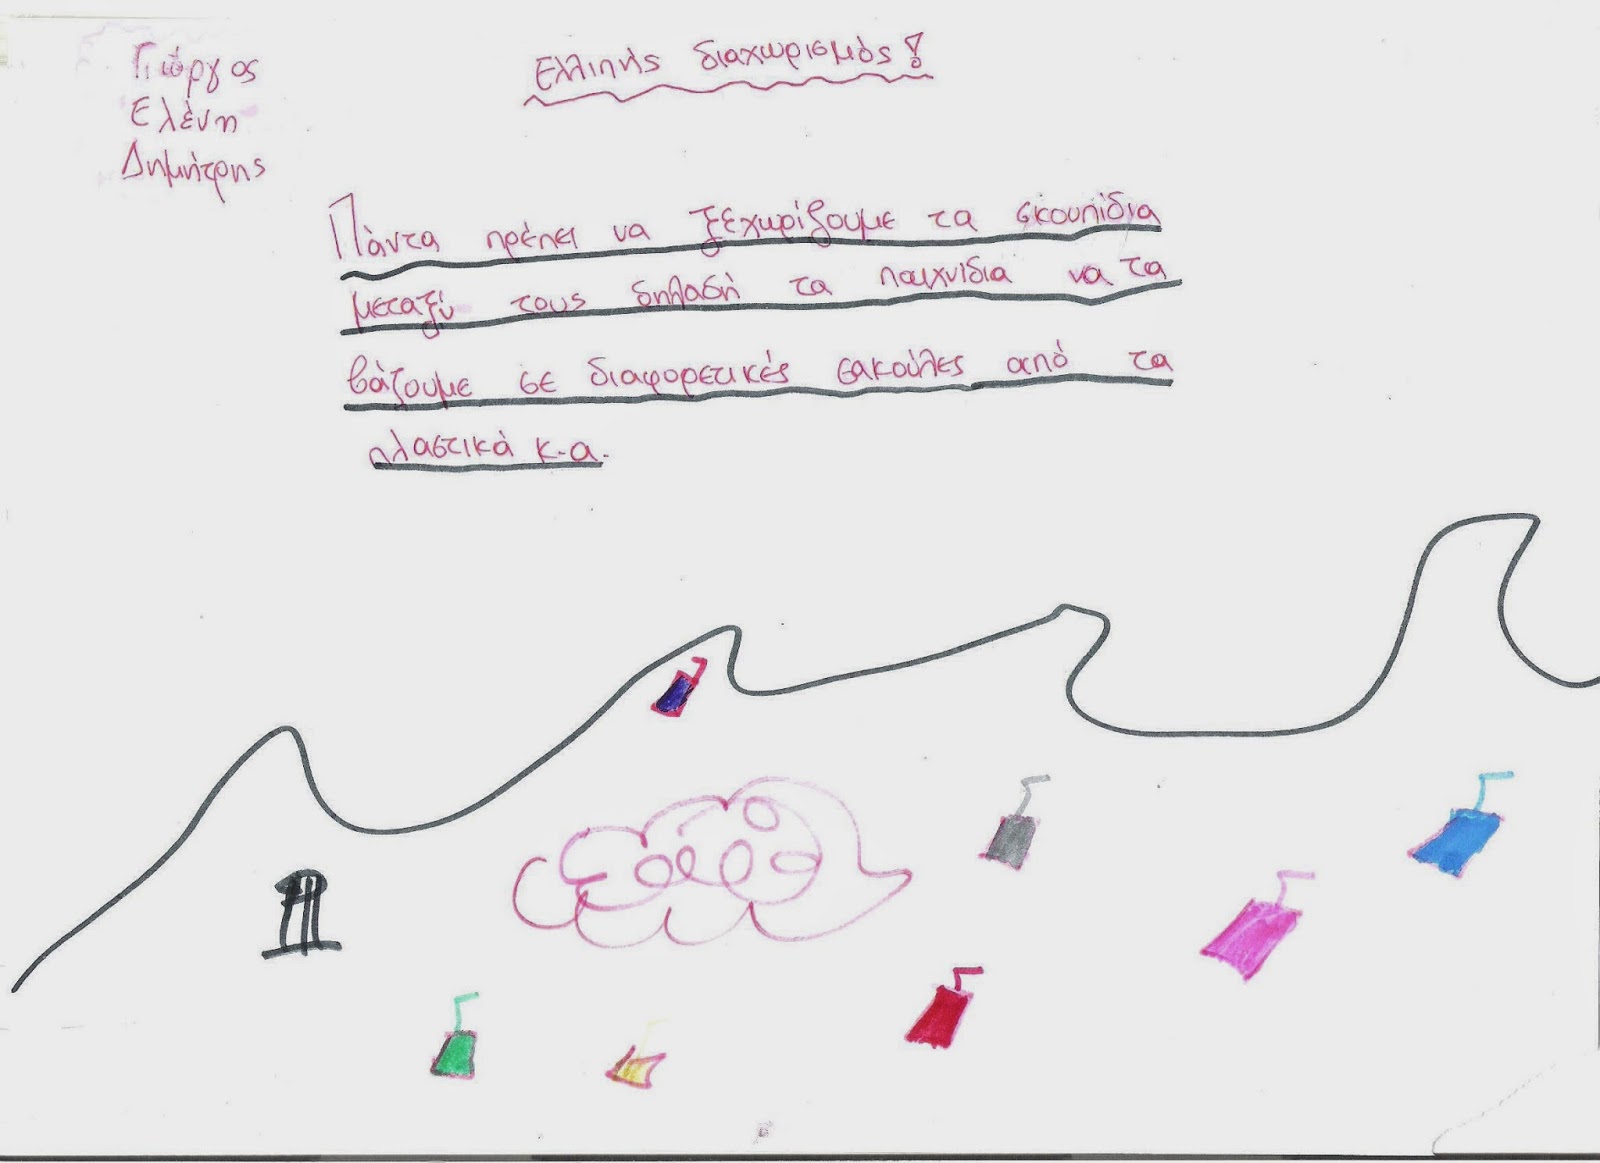 Γιώργος
Ελένη
Δημήτρης
Ελλιπής διαχωρισμός!
Πάντα πρέπει να ξεχωρίζουμε τα σκουπίδια
μεταξύ τους δηλασή τα παιχνίδια να τα
βάζουμε σε διαφορετικές σακούλες από τα
πλαστικά κ.α.